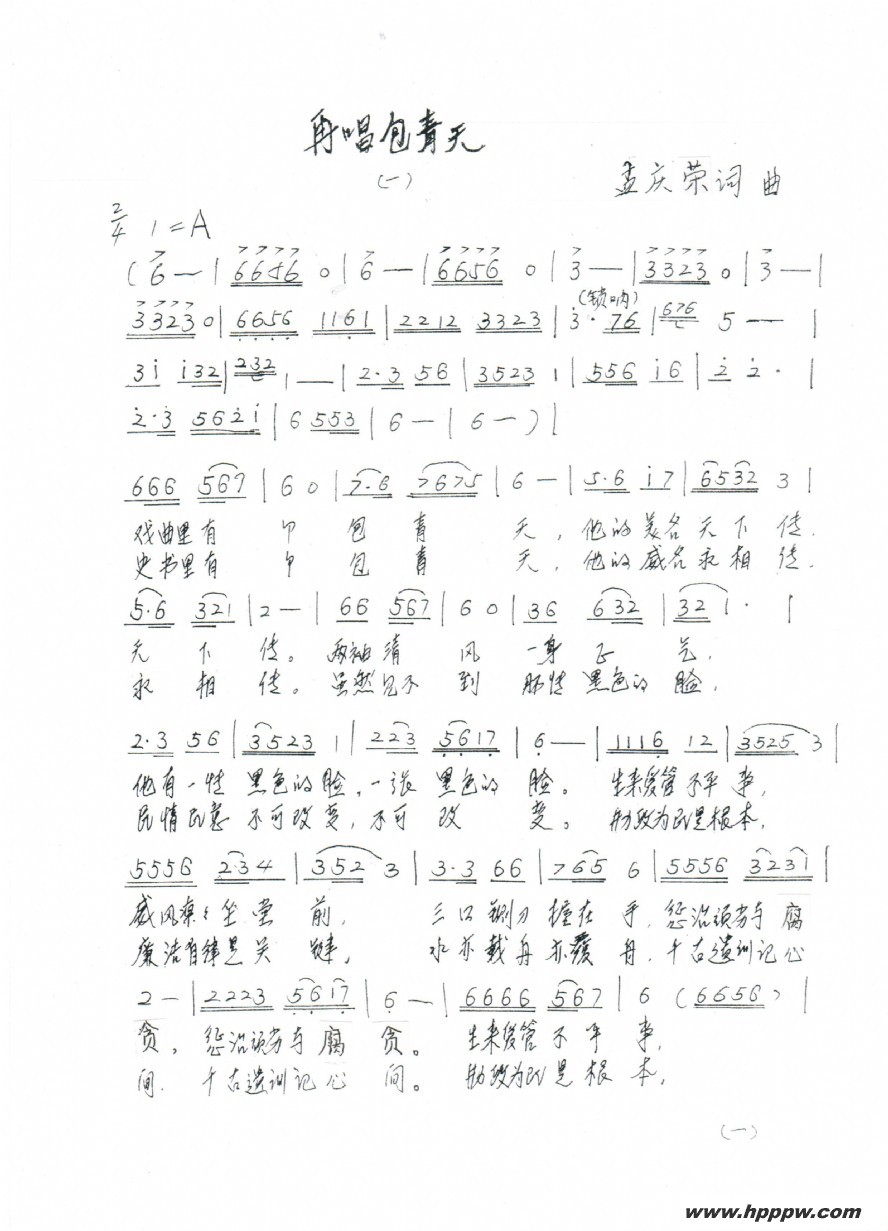 再唱包青天
(一)
孟庆荣词 曲
2/4 1=A
(6 — | 6656 0 | 6 — | 6656 0 | 3 — | 3323 0 | 3 — |
(锁呐)
3323 0 | 6656 1161 | 2212 3323 | 3· 76 | 676 5 — |
3i i32 | 232 1 — | 2·3 56 | 3523 1 | 556 i6 | 2 2· |
2·3 562i | 6 553 | 6 — | 6 — ) |
666 567 | 6 0 | 7·6 7675 | 6 — | 5·6 i7 | 6532 3 |
戏曲里有 个 包 青 天, 他的美名天下传.
史书里有 个 包 青 天, 他的威名永相传.
5·6 321 | 2 — | 66 567 | 6 0 | 36 632 | 32 1· |
天 下 传。 两袖清 风 一身正气,
永 相 传。 虽然见不到 那张黑色的脸,
2·3 56 | 3523 1 | 223 5617 | 6 — | 1116 12 | 3525 3 |
他有一张黑色的脸,一张黑色的脸。 生来爱管不平事,
民情民意不可改变,不可改变。 勤政为民是根本,
5556 2·34 | 352 3 | 3·3 66 | 765 6 | 5556 3231 |
威风凛々坐堂前, 三口铡刀握在手, 惩治顽劣与腐
廉洁自律是关键, 水亦载舟亦覆舟, 千古遗训记心
2 — | 2223 5617 | 6 — | 6666 567 | 6 (6656) |
贪, 惩治顽劣与腐贪。 生来爱管不平事,
间. 千古遗训记心间。 勤政为民是根本,
(一)
www.hpppw.com